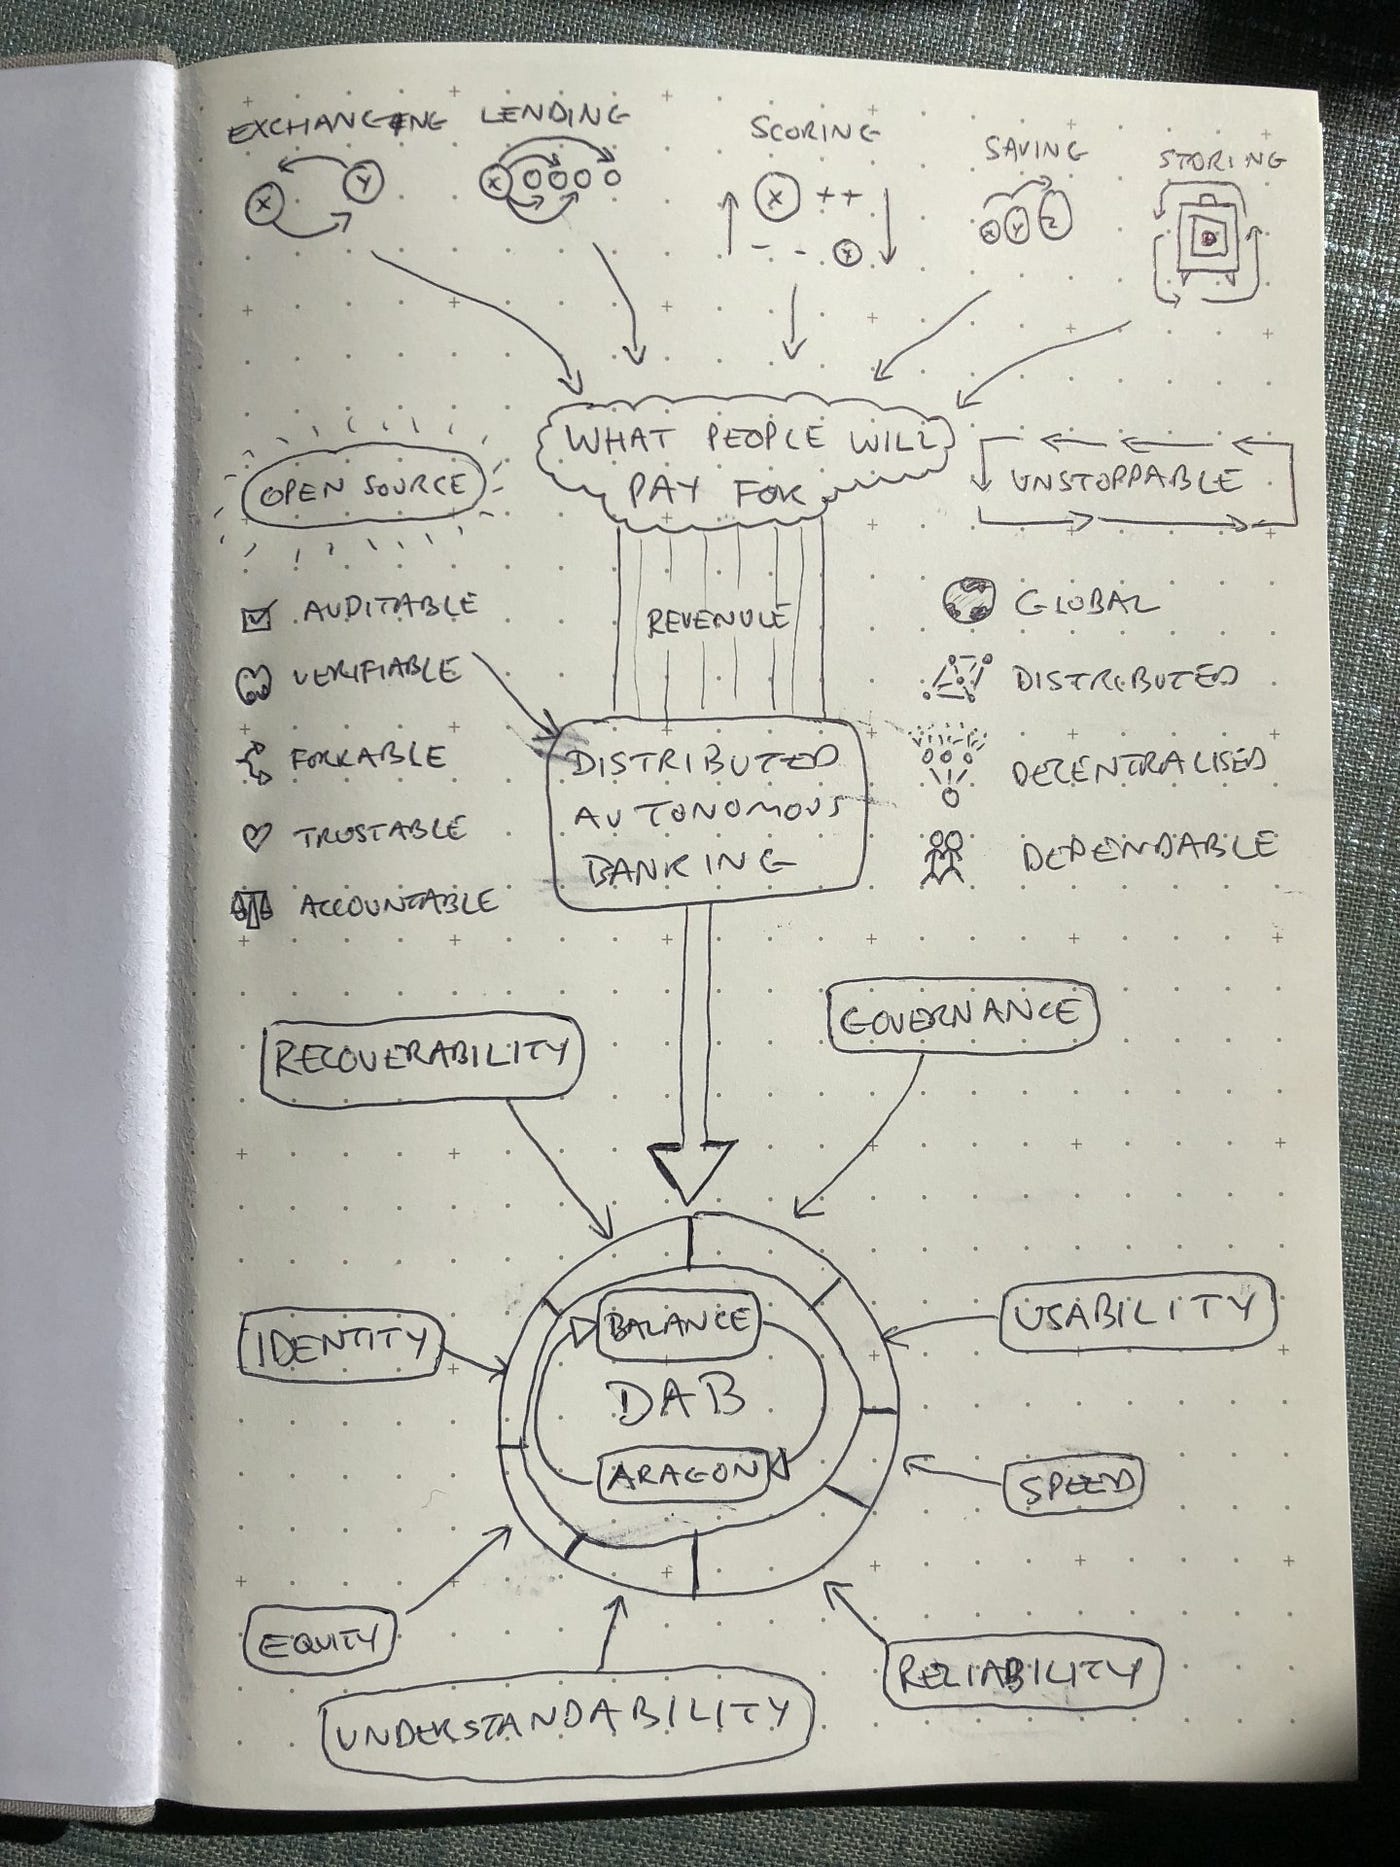 EXCHANGING
LENDING
SCORING
SAVING
STORING
X
Y
X
X
++
- -
Y
X
Y
Z
WHAT PEOPLE WILL
PAY FOR
OPEN SOURCE
UNSTOPPABLE
REVENUE
AUDITABLE
VERIFIABLE
FORKABLE
TRUSTABLE
ACCOUNTABLE
DISTRIBUTED
AUTONOMOUS
BANKING
GLOBAL
DISTRIBUTED
DECENTRALISED
DEPENDABLE
RECOVERABILITY
GOVERNANCE
IDENTITY
USABILITY
BALANCE
DAB
ARAGON
SPEED
EQUITY
RELIABILITY
UNDERSTANDABILITY